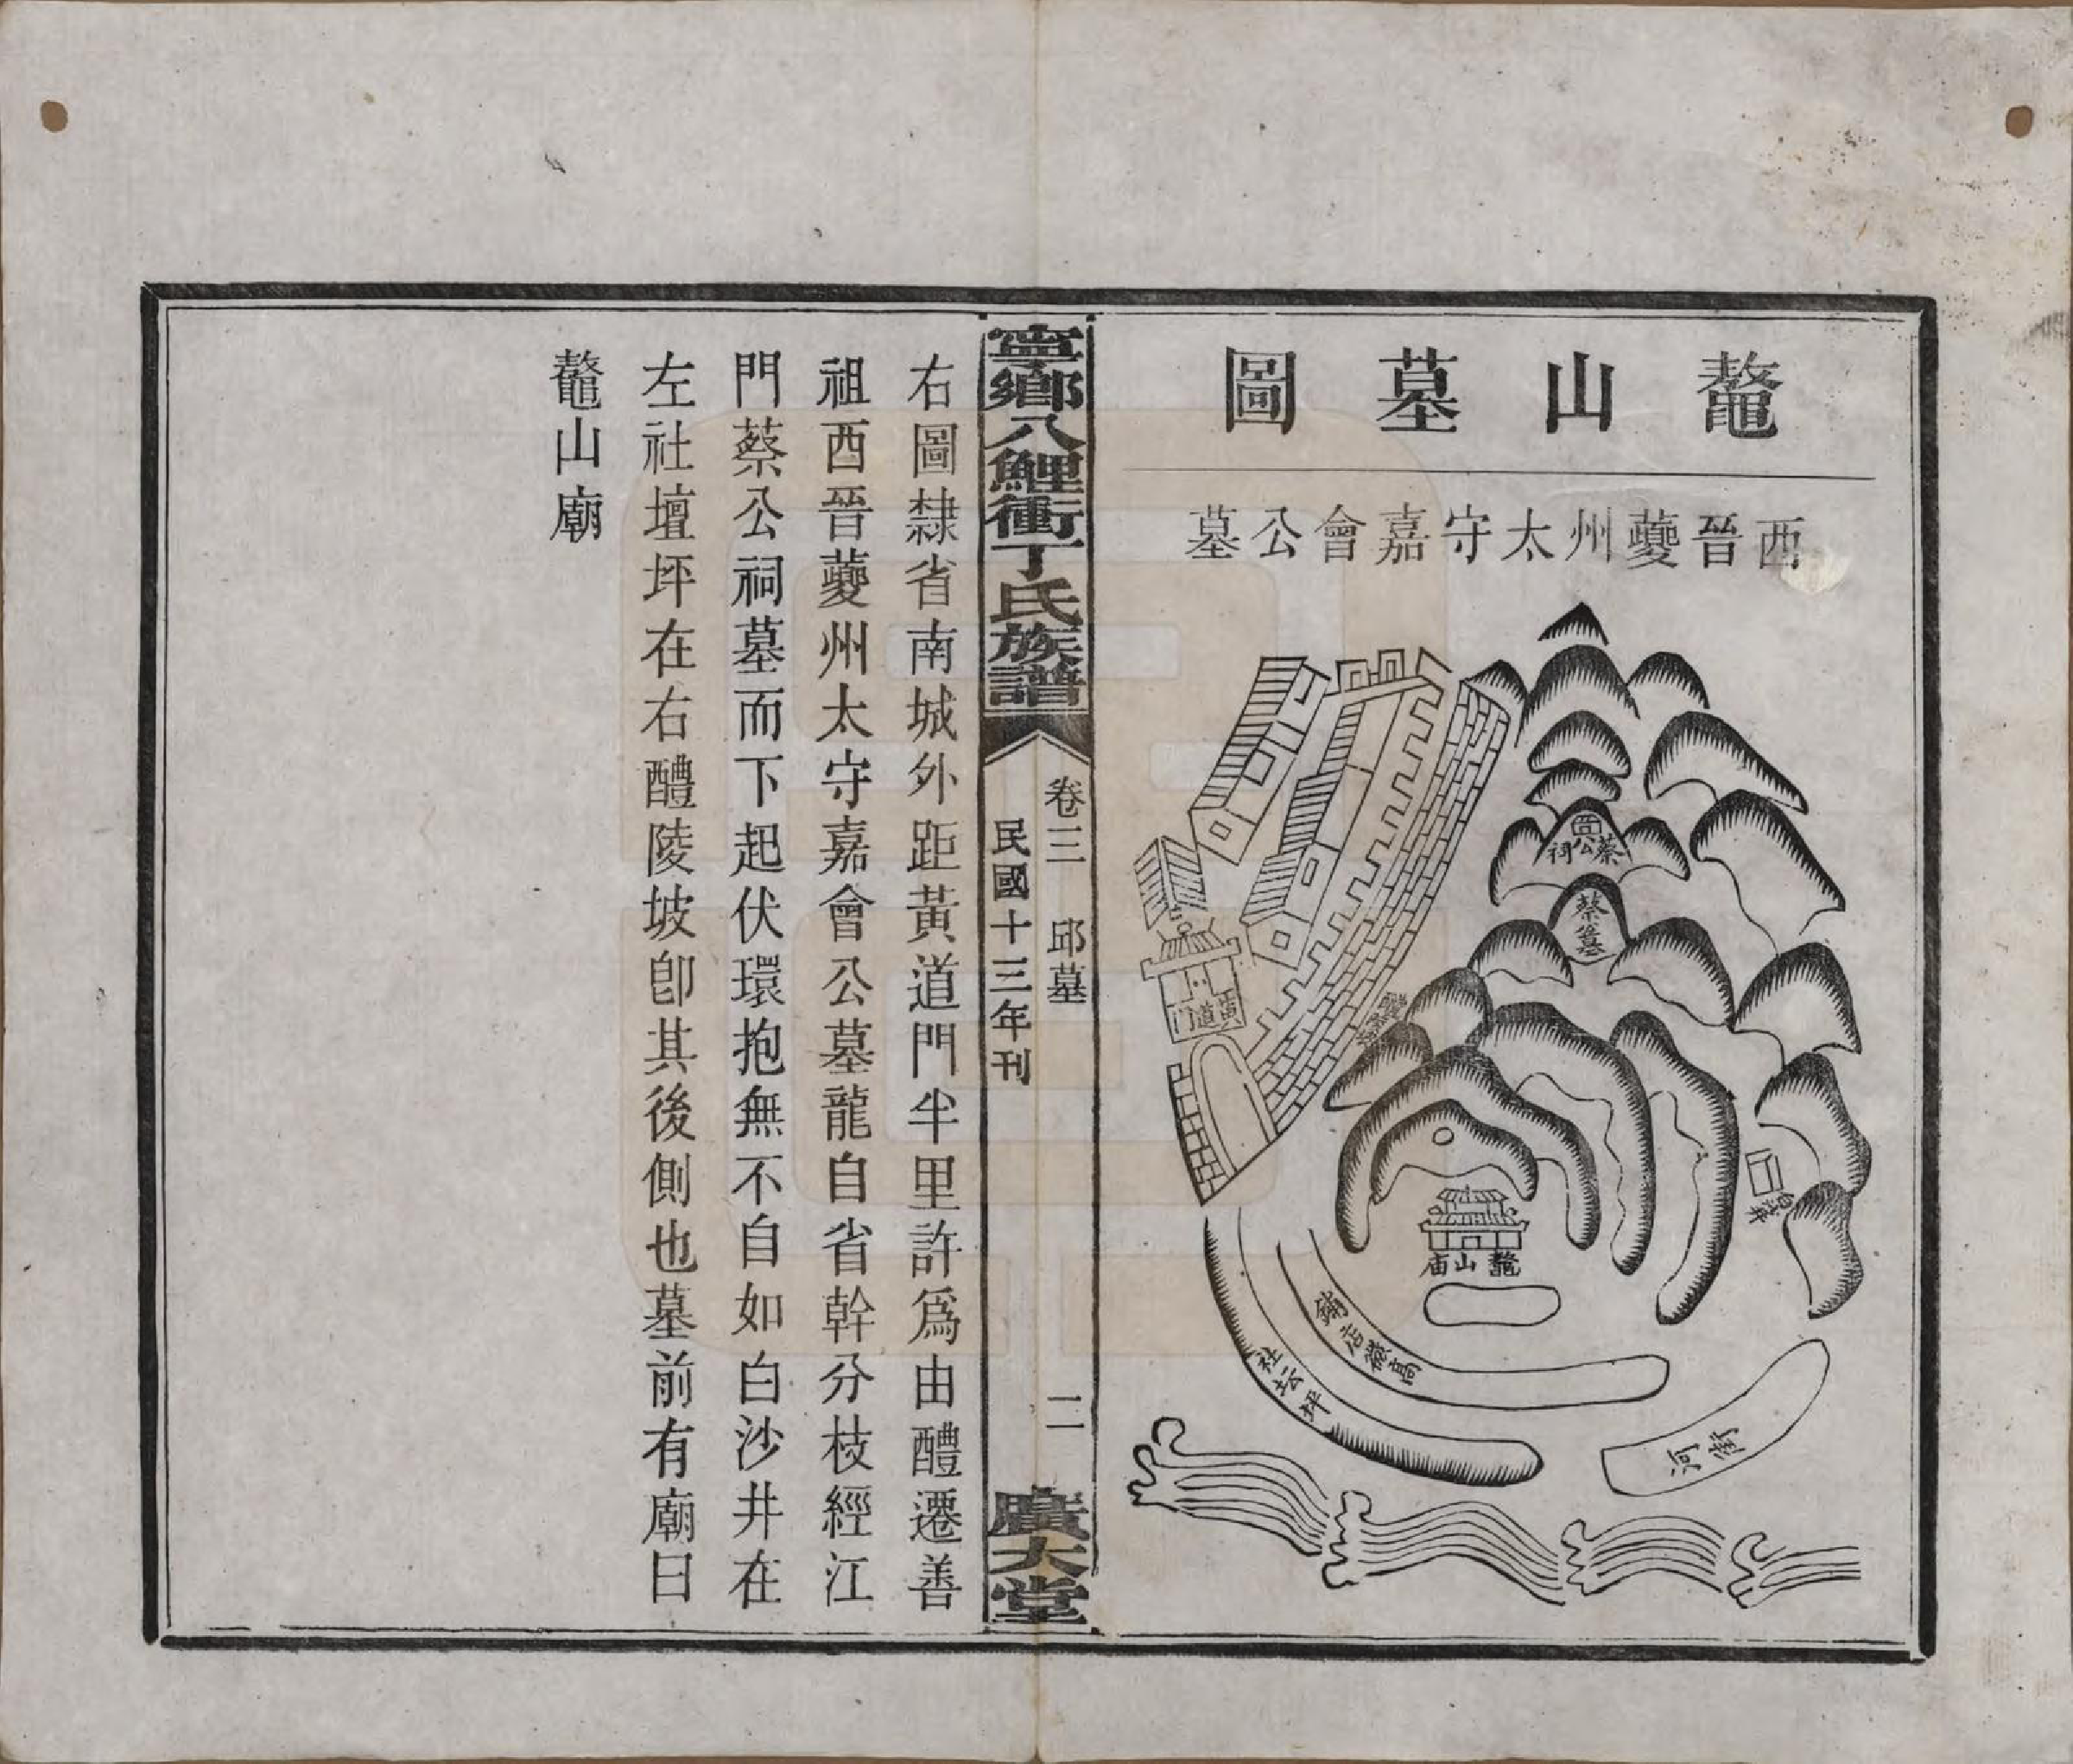 鼇山墓圖
西晉夔州太守嘉會公墓
蔡公祠
蔡墓
黃道門
醴陵坡
白沙井
鼇山庙
鋪店嶺高
社坛坪
河街
寧鄉八鯉衝丁氏族譜
卷三 邱墓
民國十三年刊
二
廣大堂
右圖隸省南城外距黃道門半里許爲由醴遷善
祖西晉夔州太守嘉會公墓龍自省幹分枝經江
門蔡公祠墓而下起伏環抱無不自如白沙井在
左社壇坪在右醴陵坡卽其後側也墓前有廟曰
鼇山廟